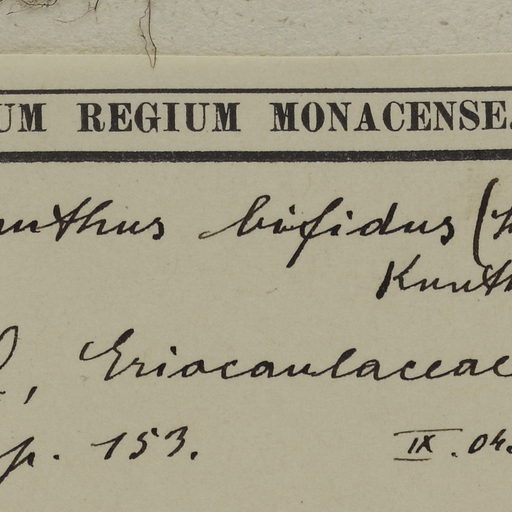 UM REGIUM MONACENSE.
anthus bifidus (
Kunth
, Eriocaulaceae
p. 153. IX. 04.